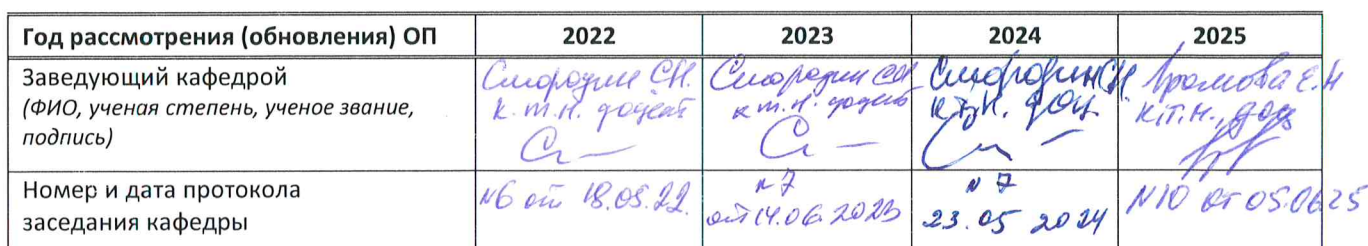 Год рассмотрения (обновления) ОП 2022 2023 2024 2025
Заведующий кафедрой
(ФИО, ученая степень, ученое звание,
подпись)
Смородин С.Н.
к.т.н. доцент
Смородин СН
к.т.н. доцент
Смородин СН.
к.т.н. доц.
Громова Е.Н
к.т.н., доц
Номер и дата протокола
заседания кафедры
№6 от 18.05.22.
№7
от 14.06.2023
№7
23.05 2024
№10 от 05.06.25